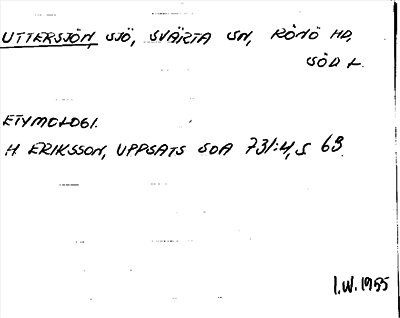 UTTERSJÖN, SJÖ, SVÄRTA SN, RÖNÖ HD,
SÖD L.
ETYMOLOGI.
H ERIKSSON, UPPSATS SOA 731:4, S 63.
I.W. 1985